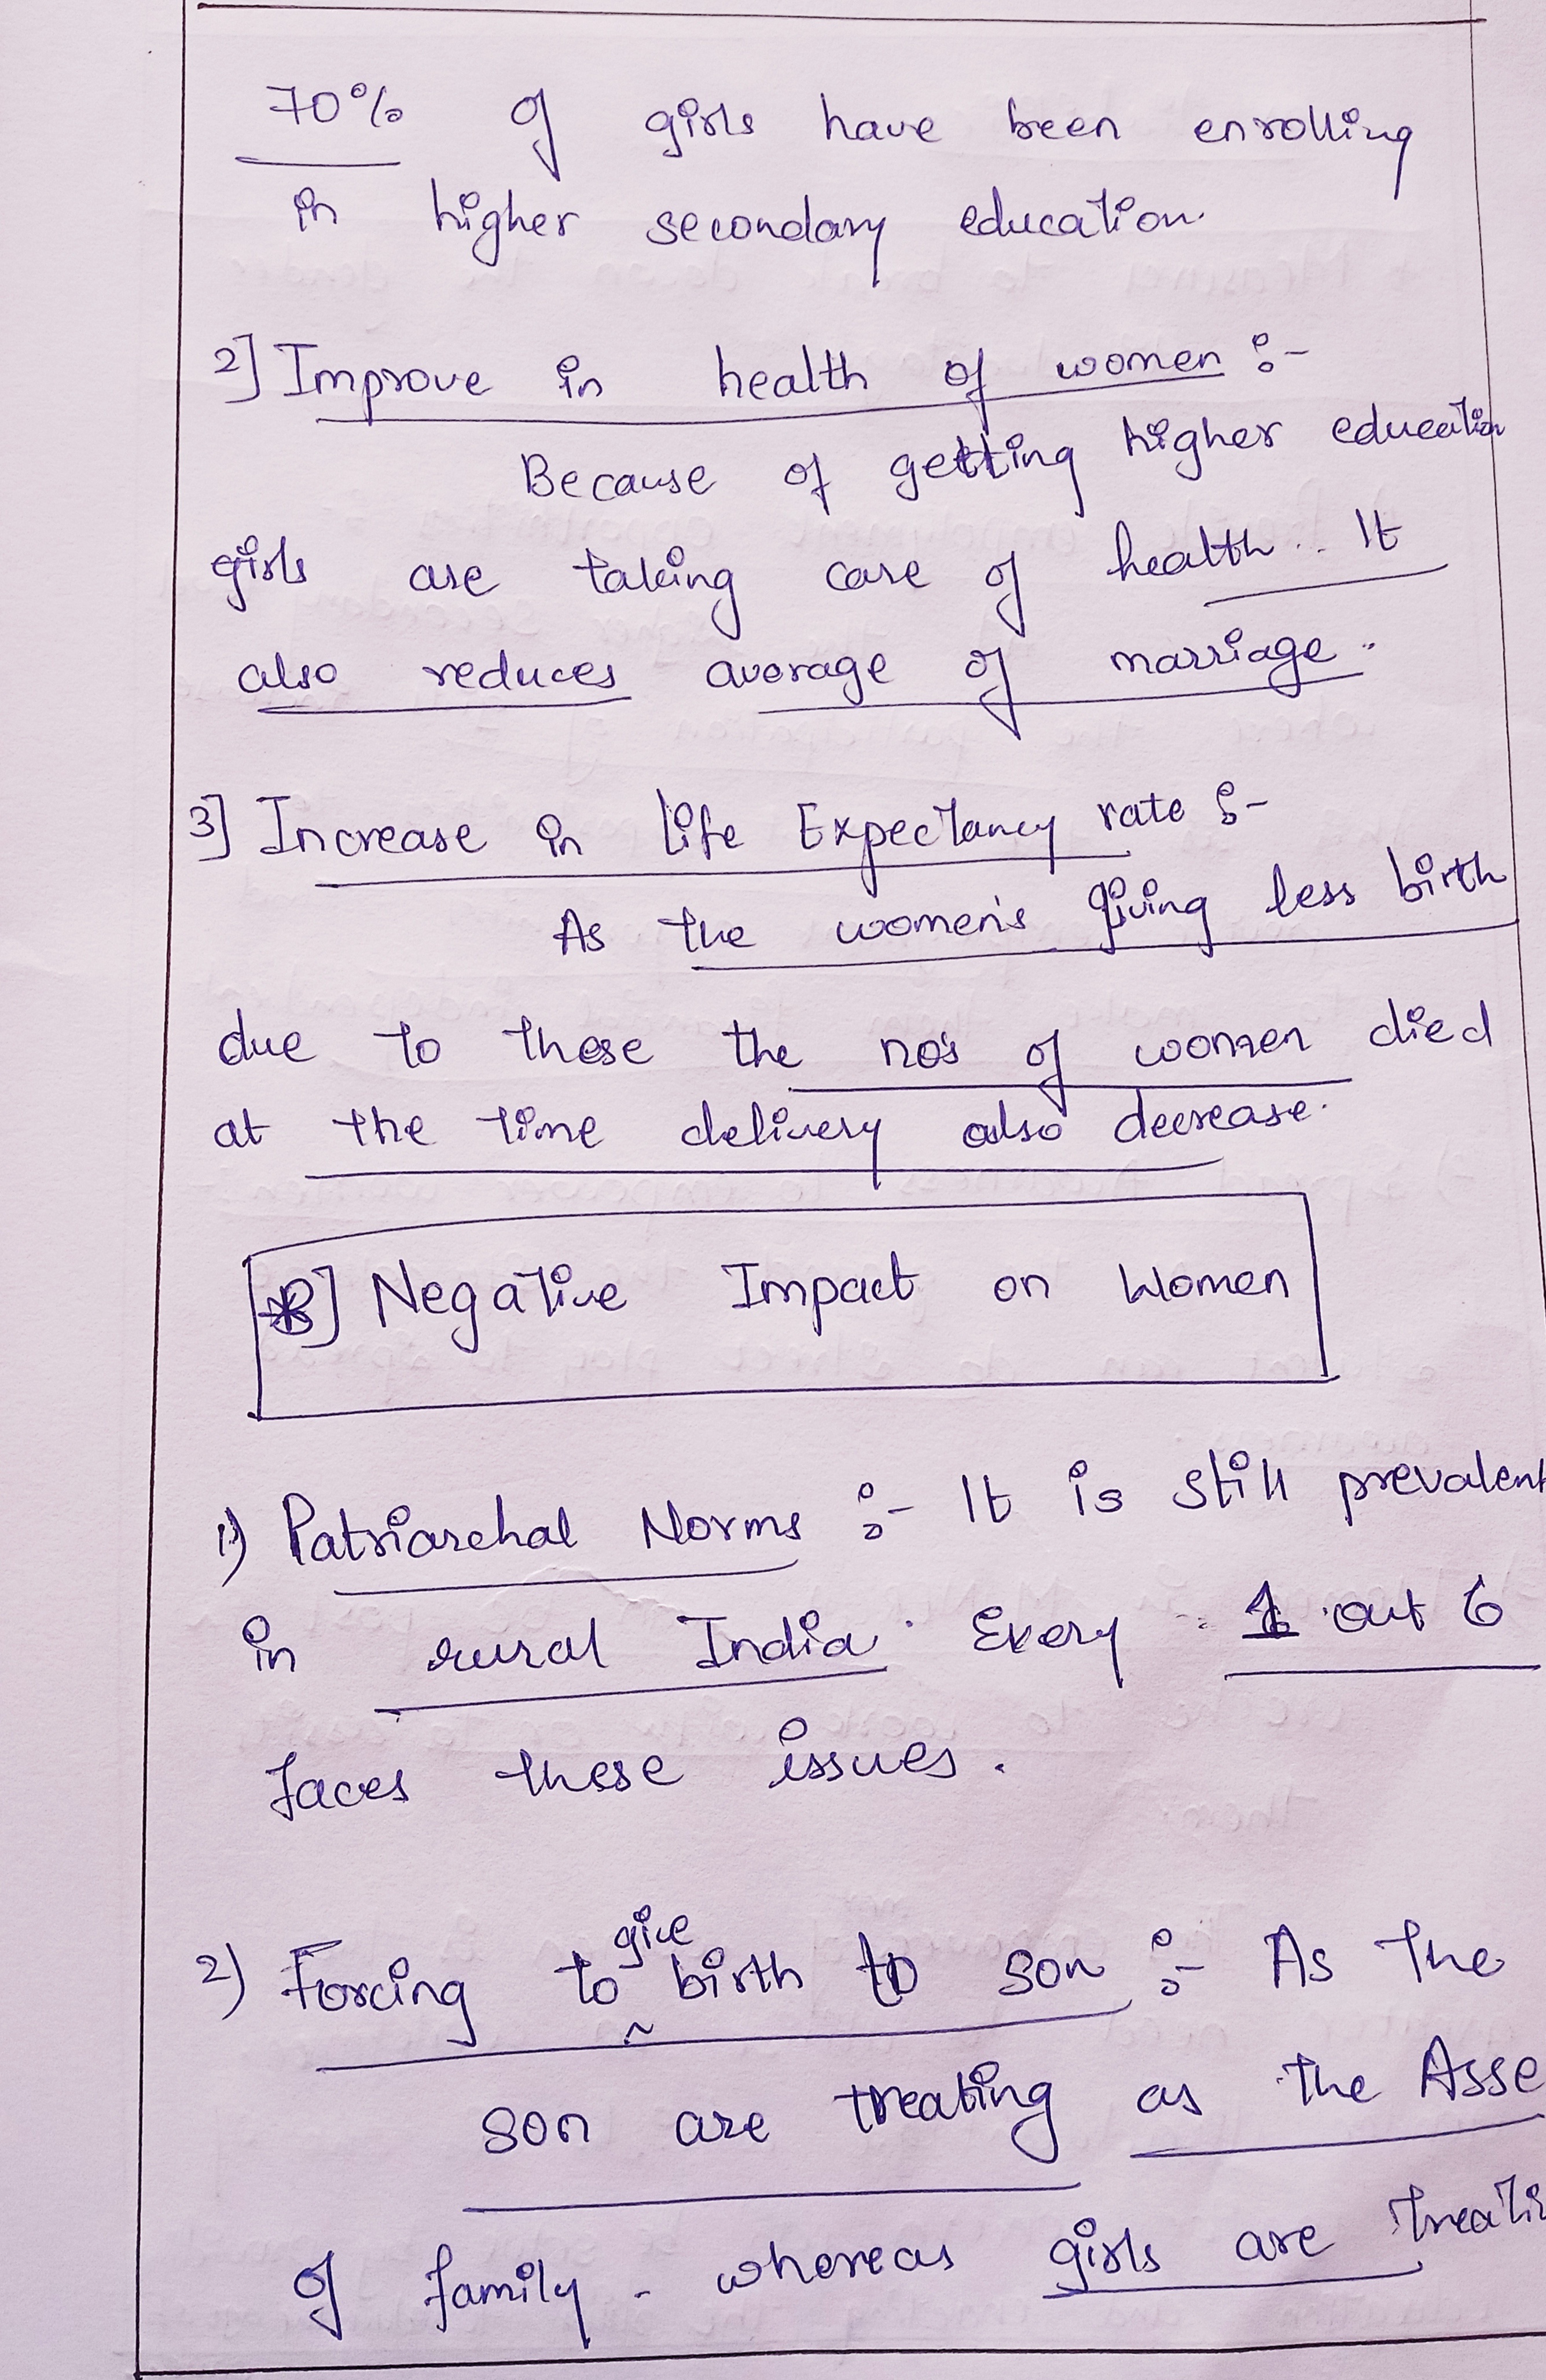 70% of girls have been enrolling
in higher secondary education.
2] Improve in health of women :-
Because of getting higher education
girls are taking care of health. It
also reduces average of marriage.
3] Increase in life Expectancy rate :-
As the women's giving less birth
due to these the no's of women died
at the time delivery also decrease.
B] Negative Impact on Women
1) Patriarchal Norms :- It is still prevalent
in rural India. Every 1 out 6
faces these issues.
2) Forcing to give birth to son :- As the
son are treating as the Asse
of family. whereas girls are treati